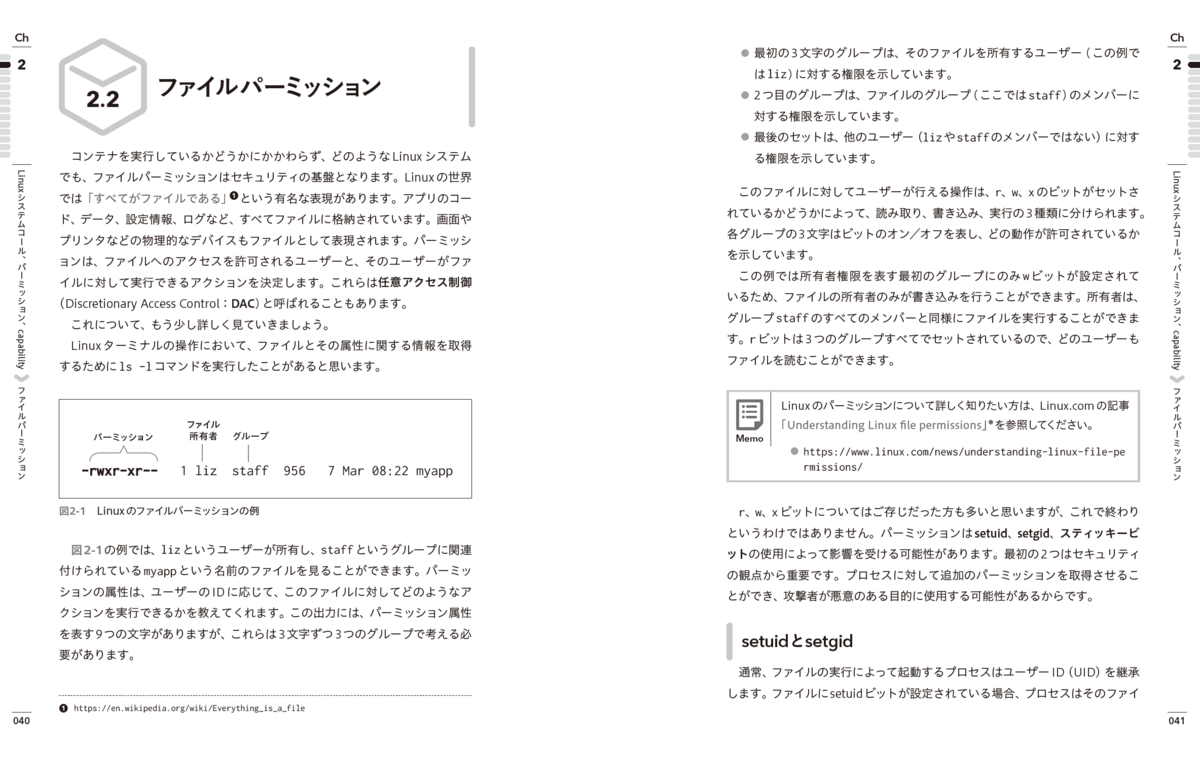 Ch
2
Linuxシステムコール、パーミッション、capability
ファイルパーミッション
040
2.2
ファイルパーミッション
コンテナを実行しているかどうかにかかわらず、どのようなLinuxシステム
でも、ファイルパーミッションはセキュリティの基盤となります。Linuxの世界
では「すべてがファイルである」❶という有名な表現があります。アプリのコー
ド、データ、設定情報、ログなど、すべてファイルに格納されています。画面や
プリンタなどの物理的なデバイスもファイルとして表現されます。パーミッシ
ョンは、ファイルへのアクセスを許可されるユーザーと、そのユーザーがファ
イルに対して実行できるアクションを決定します。これらは任意アクセス制御
（Discretionary Access Control：DAC）と呼ばれることもあります。
これについて、もう少し詳しく見ていきましょう。
Linuxターミナルの操作において、ファイルとその属性に関する情報を取得
するためにls -lコマンドを実行したことがあると思います。
パーミッション
ファイル
所有者
グループ
-rwxr-xr-- 1 liz staff 956 7 Mar 08:22 myapp
図2-1 Linuxのファイルパーミッションの例
図2-1の例では、lizというユーザーが所有し、staffというグループに関連
付けられているmyappという名前のファイルを見ることができます。パーミッ
ションの属性は、ユーザーのIDに応じて、このファイルに対してどのようなア
クションを実行できるかを教えてくれます。この出力には、パーミッション属性
を表す9つの文字がありますが、これらは3文字ずつ3つのグループで考える必
要があります。
❶ https://en.wikipedia.org/wiki/Everything_is_a_file
● 最初の3文字のグループは、そのファイルを所有するユーザー（この例で
はliz）に対する権限を示しています。
● 2つ目のグループは、ファイルのグループ（ここではstaff）のメンバーに
対する権限を示しています。
● 最後のセットは、他のユーザー（lizやstaffのメンバーではない）に対す
る権限を示しています。
このファイルに対してユーザーが行える操作は、r、w、xのビットがセットさ
れているかどうかによって、読み取り、書き込み、実行の3種類に分けられます。
各グループの3文字はビットのオン／オフを表し、どの動作が許可されているか
を示しています。
この例では所有者権限を表す最初のグループにのみwビットが設定されて
いるため、ファイルの所有者のみが書き込みを行うことができます。所有者は、
グループstaffのすべてのメンバーと同様にファイルを実行することができま
す。rビットは3つのグループすべてでセットされているので、どのユーザーも
ファイルを読むことができます。
Memo
Linuxのパーミッションについて詳しく知りたい方は、Linux.comの記事
「Understanding Linux file permissions」●を参照してください。
● https://www.linux.com/news/understanding-linux-file-pe
rmissions/
r、w、xビットについてはご存じだった方も多いと思いますが、これで終わり
というわけではありません。パーミッションはsetuid、setgid、スティッキービ
ットの使用によって影響を受ける可能性があります。最初の2つはセキュリティ
の観点から重要です。プロセスに対して追加のパーミッションを取得させるこ
とができ、攻撃者が悪意のある目的に使用する可能性があるからです。
setuidとsetgid
通常、ファイルの実行によって起動するプロセスはユーザーID（UID）を継承
します。ファイルにsetuidビットが設定されている場合、プロセスはそのファイ
Ch
2
Linuxシステムコール、パーミッション、capability
ファイルパーミッション
041